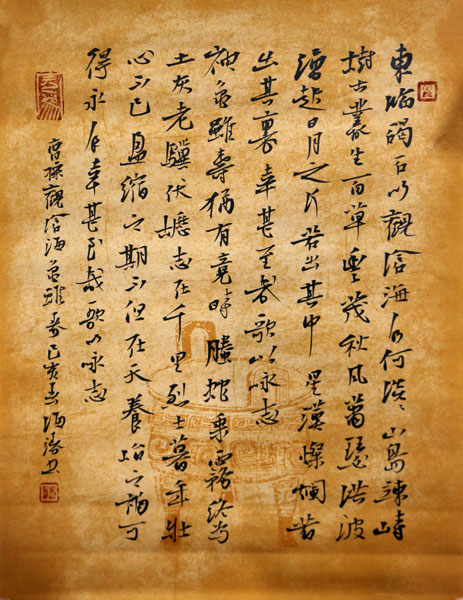 東臨碣石以觀滄海水何淡淡山島竦峙
樹木叢生百草豐茂秋風蕭瑟洪波
湧起日月之行若出其中星漢燦爛若
出其裏幸甚至哉歌以咏志
神龜雖壽猶有竟時騰蛇乘霧終為
土灰老驥伏櫪志在千里烈士暮年壯
心不已盈縮之期不但在天養怡之福可
得永年幸甚至哉歌以咏志
曹操觀滄海龜雖壽己亥春海